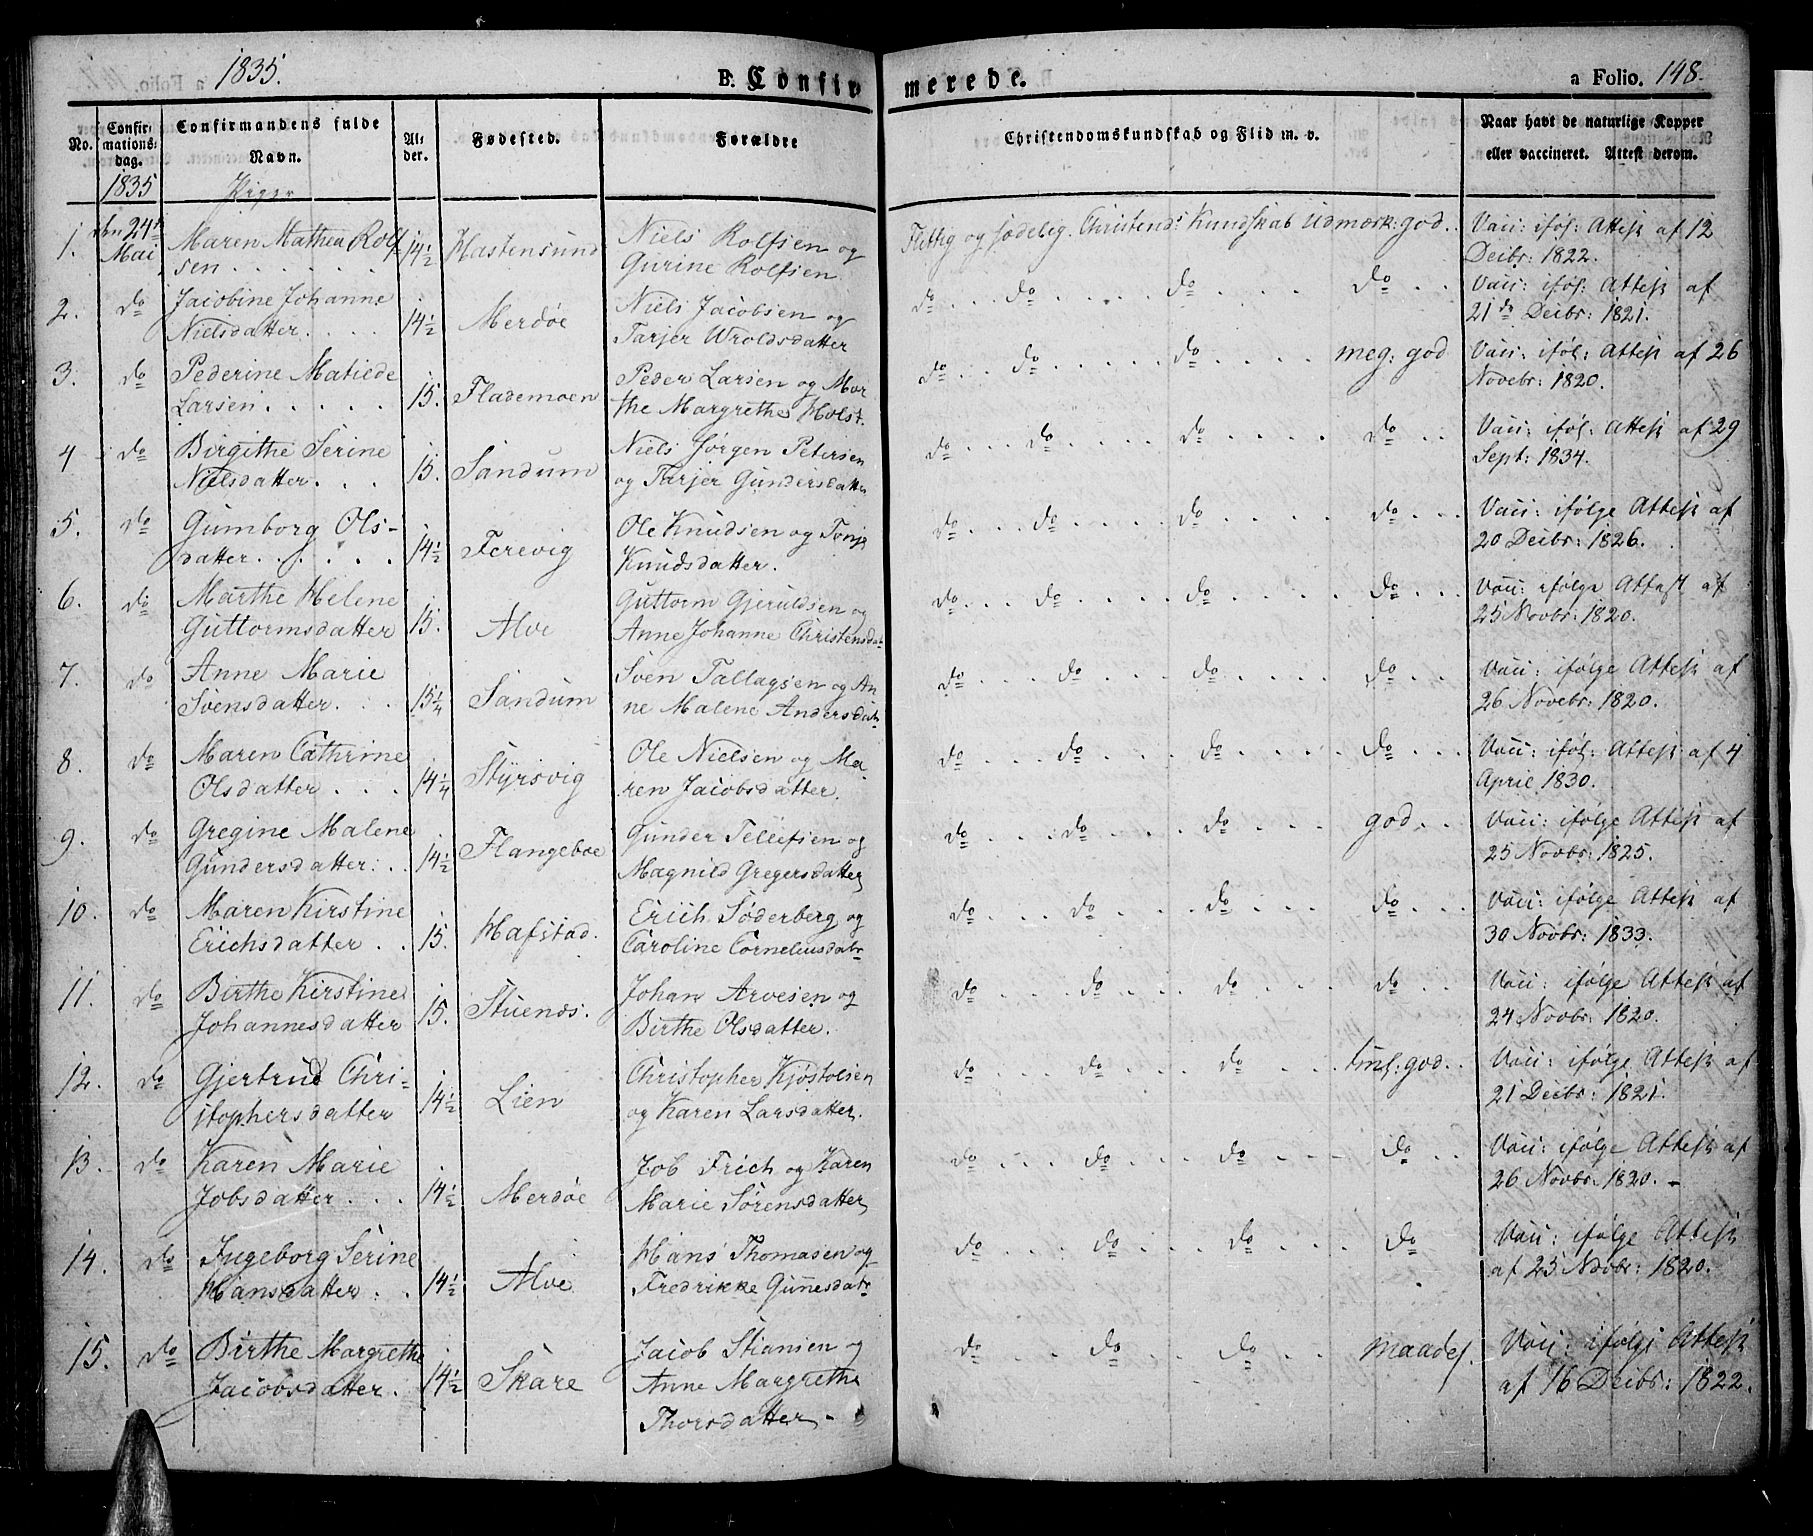 1835.
B. Confirmerede.
a Folio. 148.
No.
Confirmations-dag.
Confirmandens fulde Navn.
Alder.
Fødested.
Forældre
Christendomskundskab og Flid m. v.
Naar havt de naturlige Kopper
eller vaccineret. Attest derom.
1835 Piger
1. den 24de Mai Maren Mathea Rolfsen 14½ Hastensund Niels Rolfsen og Gurine Rolfsen Flittig og sædelig. Christend: Kundskab Udmærk: god. Vacc: iføl: Attest af 12 Decbr: 1822.
2. do Jacobine Johanne Nielsdatter. 14½ Merdøe Niels Jacobsen og Tarjer Wroldsdatter do do do do Vacc: iføl: Attest af 21de Decbr: 1821.
3. do Pederine Matilde Larsen 15. Flademoen Peder Larsen og Marthe Margrethe Holst. do do do meg: god Vacc: iføl: Attest af 26 Novebr: 1820.
4 do Birgithe Serine Nielsdatter. 15. Sandum Niels Jørgen Petersen og Tarjer Gundersdatter do do do do Vacc: iføl: Attest af 29 Sept: 1834.
5. do Gumborg Olsdatter. 14½ Ferevig Ole Knudsen og Tonje Knudsdatter. do do do do Vacc: ifølge Attest af 20 Decbr: 1826.
6. do Marthe Helene Guttormsdatter 15. Alve Guttorm Gjeruldsen og Anne Johanne Christensdatr do do do do Vacc: ifølge Attest af 25 Novbr: 1820.
7. do Anne Marie Svensdatter. 15¼ Sandum Sven Tallagsen og Anne Malene Andersdatr do do do do Vacc: ifølge Attest af 26 Novebr: 1820.
8. do Maren Cathrine Olsdatter 14¼ Styrsvig Ole Nielsen og Maren Jacobsdatter. do do do do Vacc: iføl: Attest af 4 April 1830.
9. do Gregine Malene Gundersdatter 14½ Flangeboe Gunder Tellefsen og Magnild Gregersdatter do do do god Vacc: ifølge Attest af 25 Novbr: 1825.
10. do Maren Kirstine Erichsdatter 15. Hafstad. Erich Søderberg og Caroline Corneliusdatr do do do do Vacc: ifølge Attest af 30 Novbr: 1833.
11. do Birthe Kirstine Johannesdatter 15. Stuenæs. Johan Arvesen og Birthe Olsdatter. do do do do Vacc: ifølge Attest af 24 Novbr: 1820.
12. do Gjertrud Christophersdatter 14½ Lien Christopher Kjøstolsen og Karen Larsdatter. do do do teml: god Vacc: ifølge Attest af 21 Decbr: 1821.
13. do Karen Marie Jobsdatter 14½ Merdøe Job Frich og Karen Marie Sørensdatter do do do do Vacc: ifølge Attest af 26 Novbr: 1820.
14. do Ingeborg Serine Hansdatter 14½ Alve Hans Thomasen og Fredrikke Gunnesdatr do do do do Vacc: ifølge Attest af 25 Novbr: 1820.
15. do Birthe Margrethe Jacobsdatter. 14½ Skare Jacob Stiansen og Anne Margrethe Thorsdatter do do do maadel. Vacc: ifølge Attest af 16 Decbr: 1822.